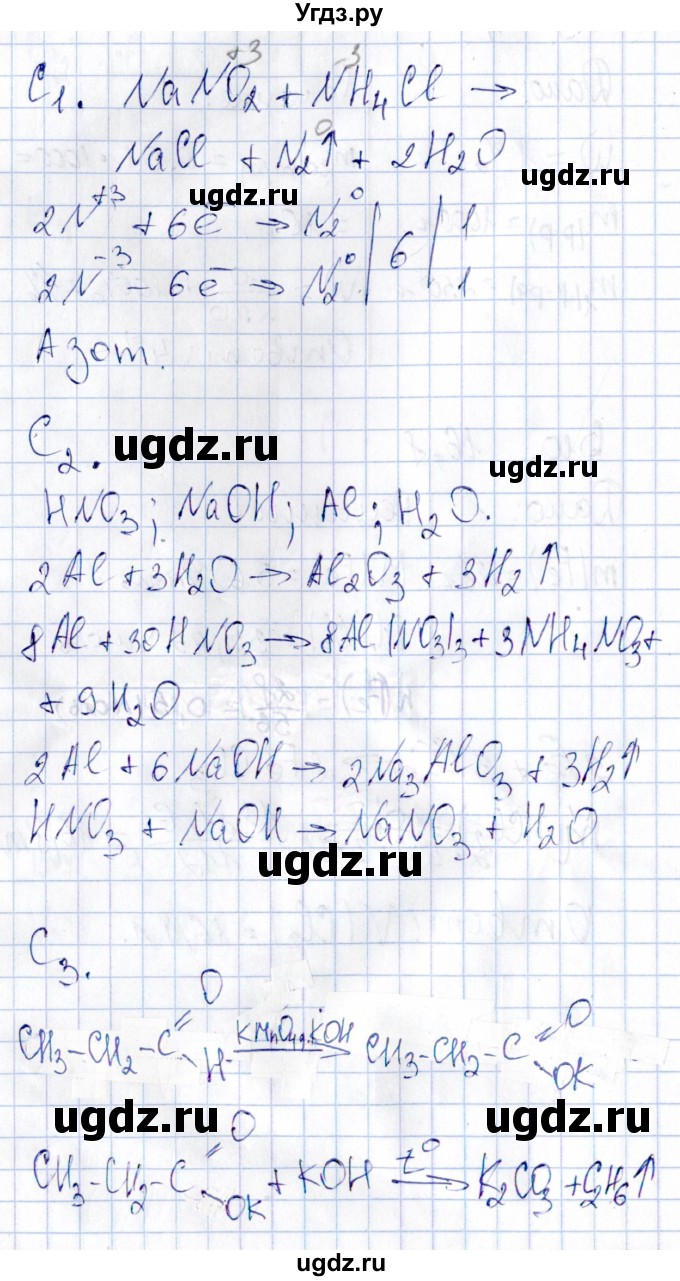 Угдз.ру
C1. NaNO2 + NH4Cl →
+3 -3
NaCl + N2↑ + 2H2O
0
ugdz.ru ugdz.ru
2N+3 + 6e̅ → N2 0 | 6 | 1
2N-3 - 6e̅ → N2 0 | | 1
Азот.
C2.
ugdz.ru ugdz.ru
HNO3; NaOH; Al; H2O.
2Al + 3H2O → Al2O3 + 3H2↑
8Al + 30HNO3 → 8Al(NO3)3 + 3NH4NO3 +
+ 9H2O
2Al + 6NaOH → 2Na3AlO3 + 3H2↑
HNO3 + NaOH → NaNO3 + H2O
ugdz.ru ugdz.ru
C3.
CH3-CH2-C(=O)-H KMnO4, KOH → CH3-CH2-C(=O)OK
ugdz.ru ugdz.ru
CH3-CH2-C(=O)OK + KOH t° → K2CO3 + C2H6↑
ugdz.ru